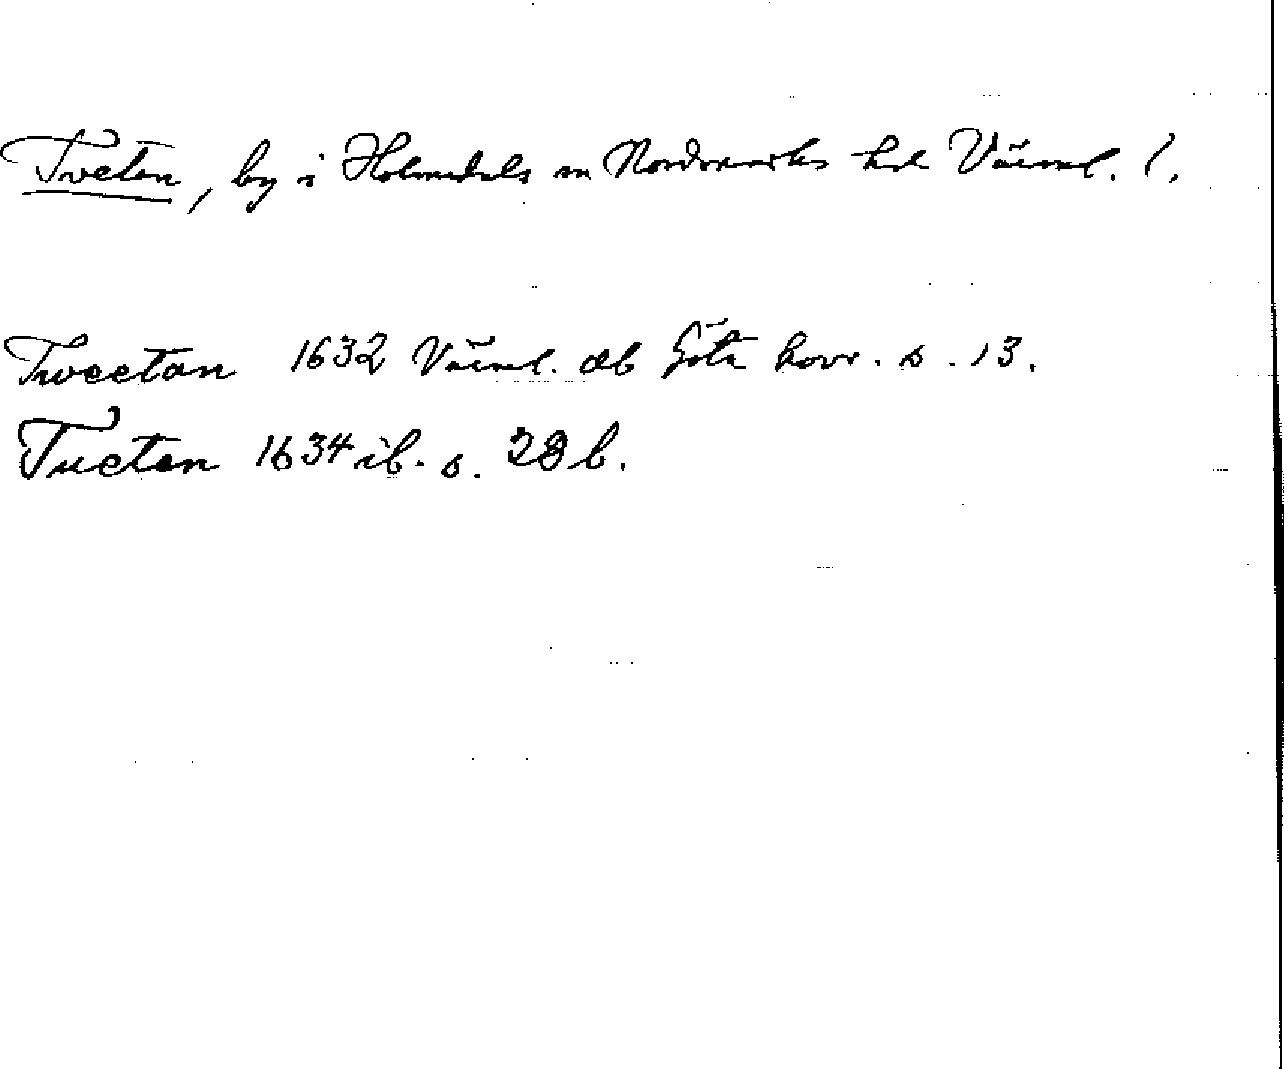 Tveten, by i Holmedals sn Nordmarks hd Värml. l.
Tweetan 1632 Värml. db Göta hovr. s. 13.
Tueten 1634 ib. s. 28 b.